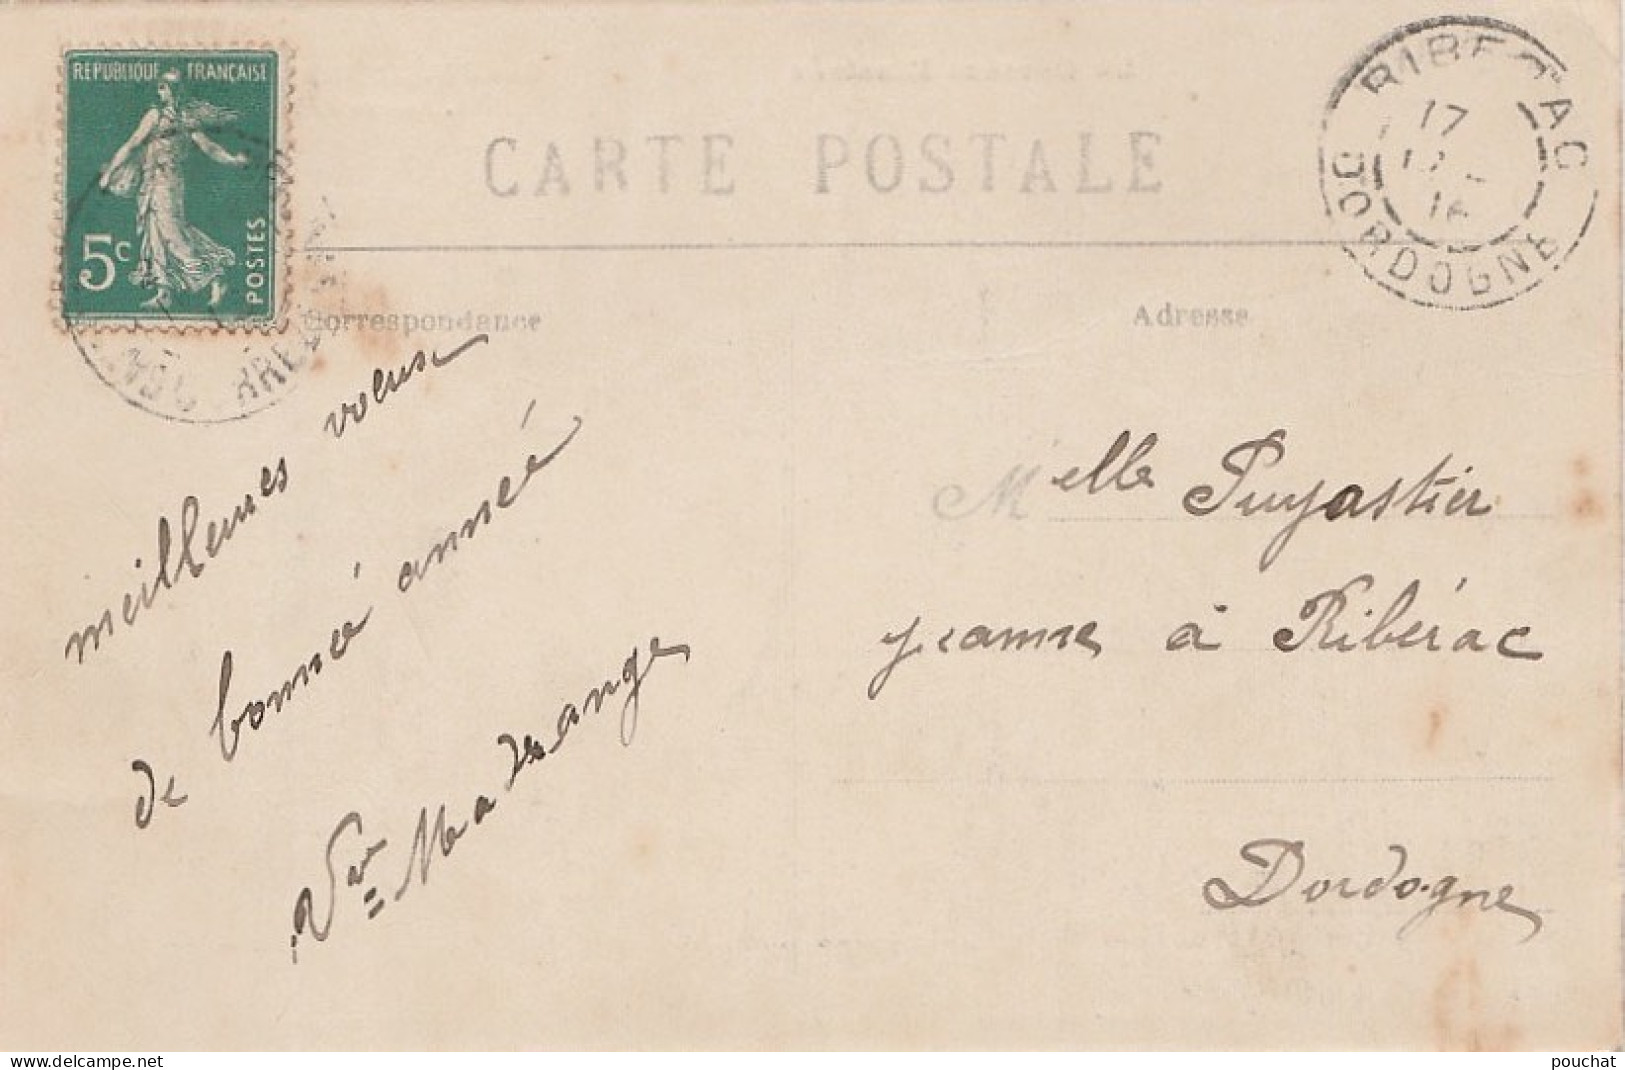 REPUBLIQUE FRANÇAISE
5c
POSTES
CARTE POSTALE
RIBERAC
17
16
DORDOGNE
Correspondance
Adresse
meilleures voeux
de bonné année
Ve Madrange
Melle Puyastier
jeanne à Ribérac
Dordogne
delcampe.net
pouchat